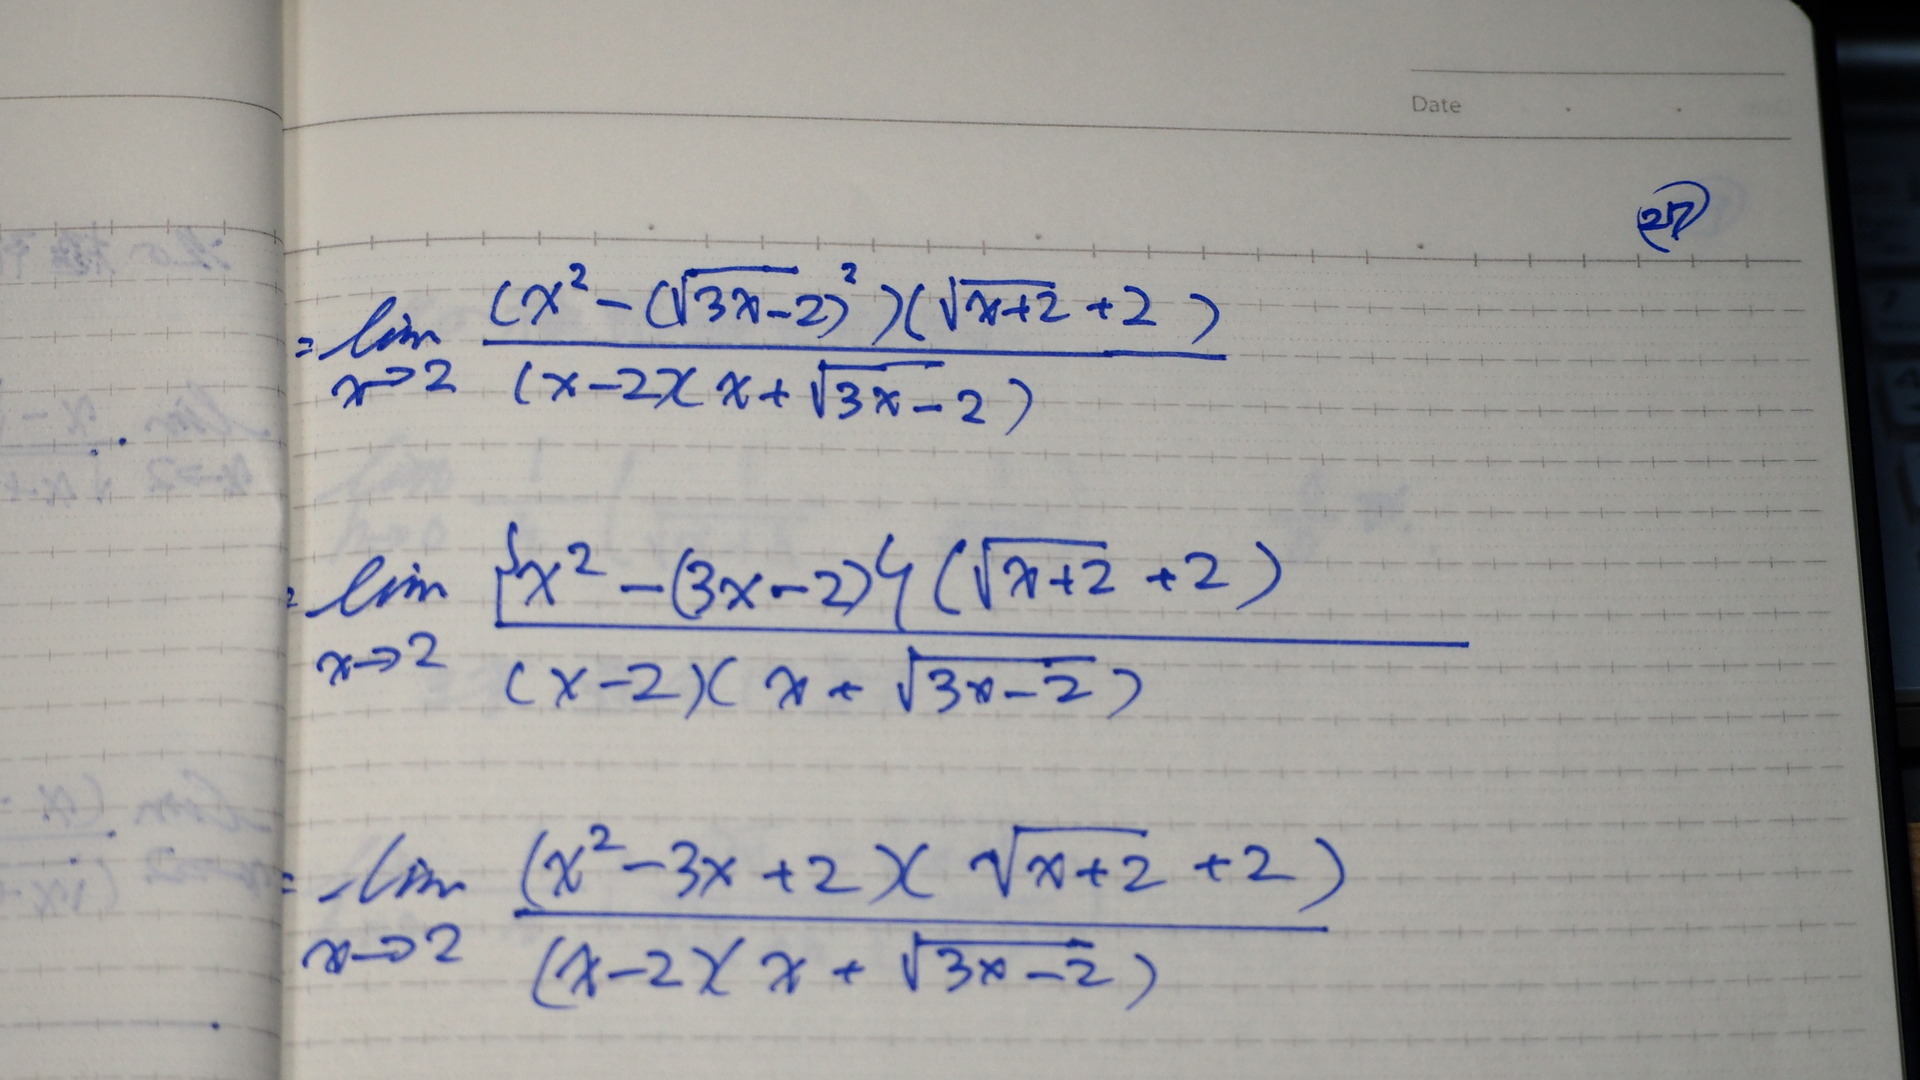 Date
27
= lim (x² - (√3x-2)²)(√x+2 + 2)
x→2 (x-2)(x+√3x-2)
= lim {x² - (3x-2)}(√x+2 + 2)
x→2 (x-2)(x+√3x-2)
= lim (x²-3x+2)(√x+2 + 2)
x→2 (x-2)(x+√3x-2)